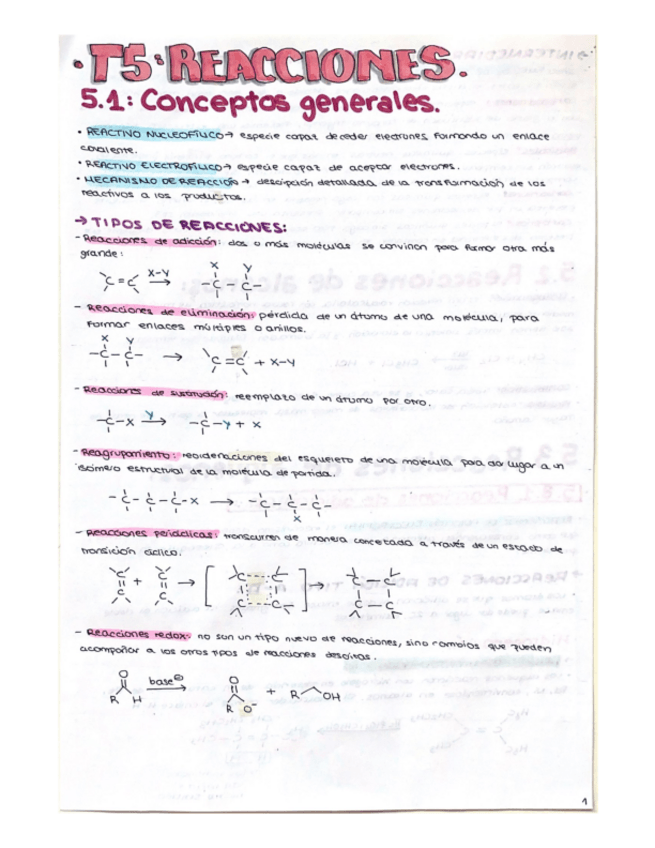 · T5: REACCIONES.
5.1: Conceptos generales.
· REACTIVO NUCLEOFÍLICO → especie capaz de ceder electrones formando un enlace
covalente.
· REACTIVO ELECTROFÍLICO → especie capaz de aceptar electrones.
· MECANISMO DE REACCIÓN → descripción detallada de la transformación de los
reactivos a los productos.
→ TIPOS DE REACCIONES:
- Reacciones de adicción: dos o más moléculas se convinan para formar otra más
grande:
C=C X-Y → X Y -C-C-
- Reacciones de eliminación: pérdida de un átomo de una molécula, para
formar enlaces múltiples o anillos.
X Y
-C-C- → C=C + X-Y
- Reacciones de sustitución: reemplazo de un átomo por otro.
-C-X Y → -C-Y + X
- Reagrupamiento: reordenaciones del esqueleto de una molécula para dar lugar a un
isómero estructural de la molécula de partida.
-C-C-C-X → -C-C-C-
X
- Reacciones pericíclicas: transcurren de manera concetada a través de un estado de
transición cíclico.
C=C + C=C → [C C C C] → C-C C-C
- Reacciones redox: no son un tipo nuevo de reacciones, sino cambios que pueden
acompañar a los otros tipos de reacciones descritos.
O base⊖ O
R H → R O⁻ + R OH
1